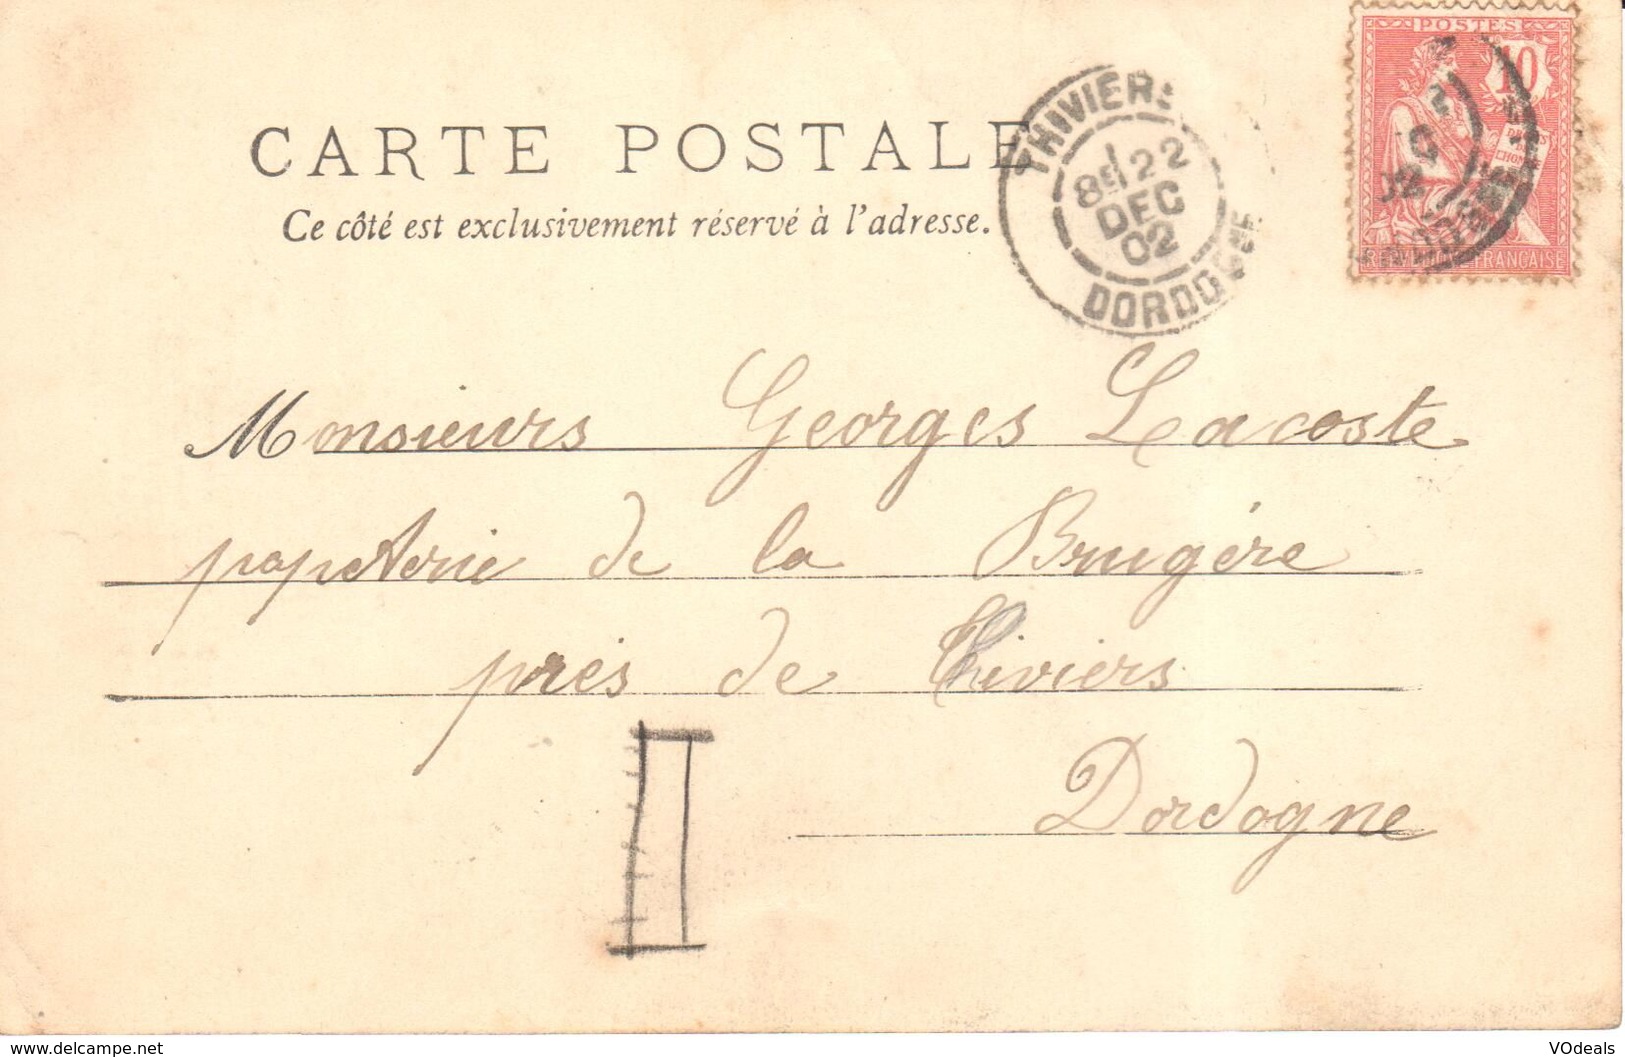 POSTES
10
DROITS DE L'HOMME
REPUBLIQUE FRANÇAISE
CARTE POSTALE
Ce côté est exclusivement réservé à l'adresse.
THIVIERS
8E 22
DEC
02
DORDOGNE
Monsieurs Georges Lacoste
papeterie de la Brugére
près de Thiviers
Dordogne
www.delcampe.net
VOdeals